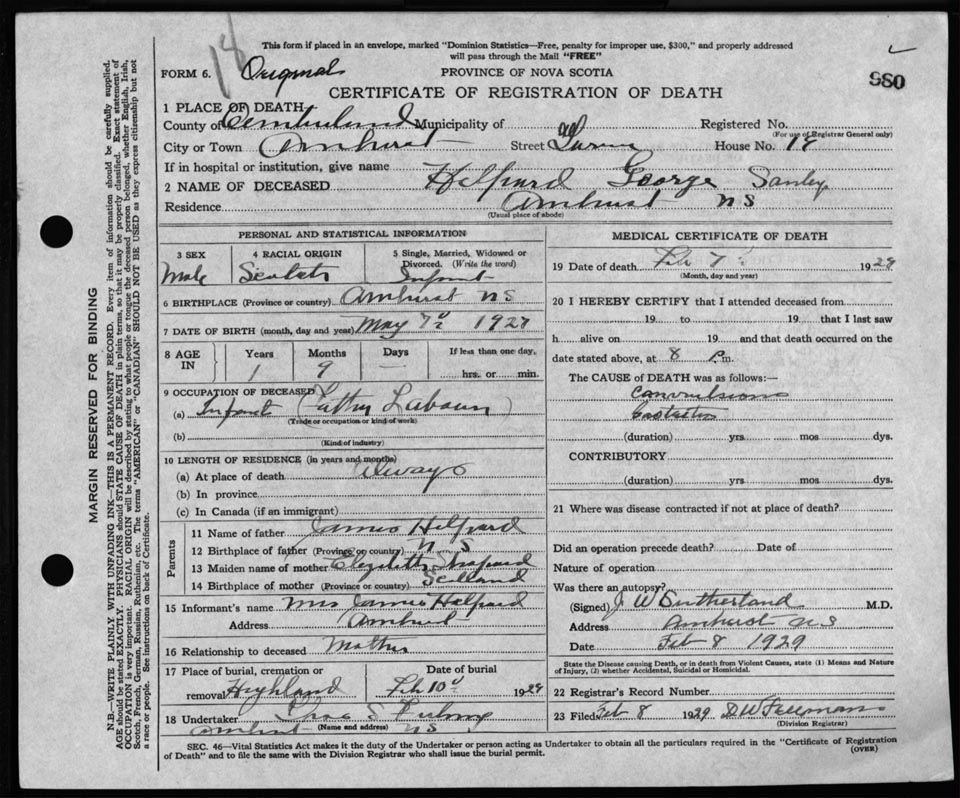 This form if placed in an envelope, marked "Dominion Statistics—Free, penalty for improper use, $300," and properly addressed
will pass through the Mail "FREE"
18
FORM 6. Original
PROVINCE OF NOVA SCOTIA
980
CERTIFICATE OF REGISTRATION OF DEATH
1 PLACE OF DEATH
County of Cumberland Municipality of Registered No.
(For use of Registrar General only)
City or Town Amherst Street House No. 18
If in hospital or institution, give name
2 NAME OF DECEASED Helpard George
Residence Amherst N S
(Usual place of abode)
PERSONAL AND STATISTICAL INFORMATION
3 SEX 4 RACIAL ORIGIN 5 Single, Married, Widowed or Divorced. (Write the word)
Male Scotch Infant
6 BIRTHPLACE (Province or country) Amherst N S
7 DATE OF BIRTH (month, day and year) May 7 1927
8 AGE IN Years Months Days If less than one day,
1 9 — hrs. or min.
9 OCCUPATION OF DECEASED
(a) Infant (Father Labourer)
(Trade or occupation or kind of work)
(b)
(Kind of industry)
10 LENGTH OF RESIDENCE (in years and months)
(a) At place of death Always
(b) In province
(c) In Canada (if an immigrant)
Parents
11 Name of father James Helpard
12 Birthplace of father (Province or country) N S
13 Maiden name of mother Elizabeth
14 Birthplace of mother (Province or country) Scotland
15 Informant's name Mrs James Helpard
Address Amherst
16 Relationship to deceased Mother
17 Place of burial, cremation or removal Highland
Date of burial Feb 10 1929
18 Undertaker
(Name and address)
Amherst NS
MEDICAL CERTIFICATE OF DEATH
19 Date of death Feb 7 1929
(Month, day and year)
20 I HEREBY CERTIFY that I attended deceased from
19 to 19 that I last saw
h alive on 19 and that death occurred on the
date stated above, at 8 P.m.
The CAUSE of DEATH was as follows:—
Convulsions
(duration) yrs mos dys.
CONTRIBUTORY
(duration) yrs mos dys.
21 Where was disease contracted if not at place of death?
Did an operation precede death? Date of
Nature of operation
Was there an autopsy?
(Signed) J W Sutherland M.D.
Address Amherst NS
Date Feb 8 1929
State the Disease causing Death, or in death from Violent Causes, state (1) Means and Nature
of Injury, (2) whether Accidental, Suicidal or Homicidal.
22 Registrar's Record Number
23 Filed Feb 8 1929
(Division Registrar)
SEC. 46—Vital Statistics Act makes it the duty of the Undertaker or person acting as Undertaker to obtain all the particulars required in the "Certificate of Registration
of Death" and to file the same with the Division Registrar who shall issue the burial permit.
(OVER)
MARGIN RESERVED FOR BINDING
N.B.—WRITE PLAINLY WITH UNFADING INK—THIS IS A PERMANENT RECORD. Every item of information should be carefully supplied.
AGE should be stated EXACTLY. PHYSICIANS should STATE CAUSE OF DEATH in plain terms, so that it may be properly classified. Exact statement of
OCCUPATION is very important. RACIAL ORIGIN will be described by stating to what people or tongue the deceased person belonged, whether English, Irish,
Scotch, French, German, Russian, Ruthenian, etc. The terms "AMERICAN" or "CANADIAN" SHOULD NOT BE USED as they express citizenship but not
a race or people. See instructions on back of Certificate.